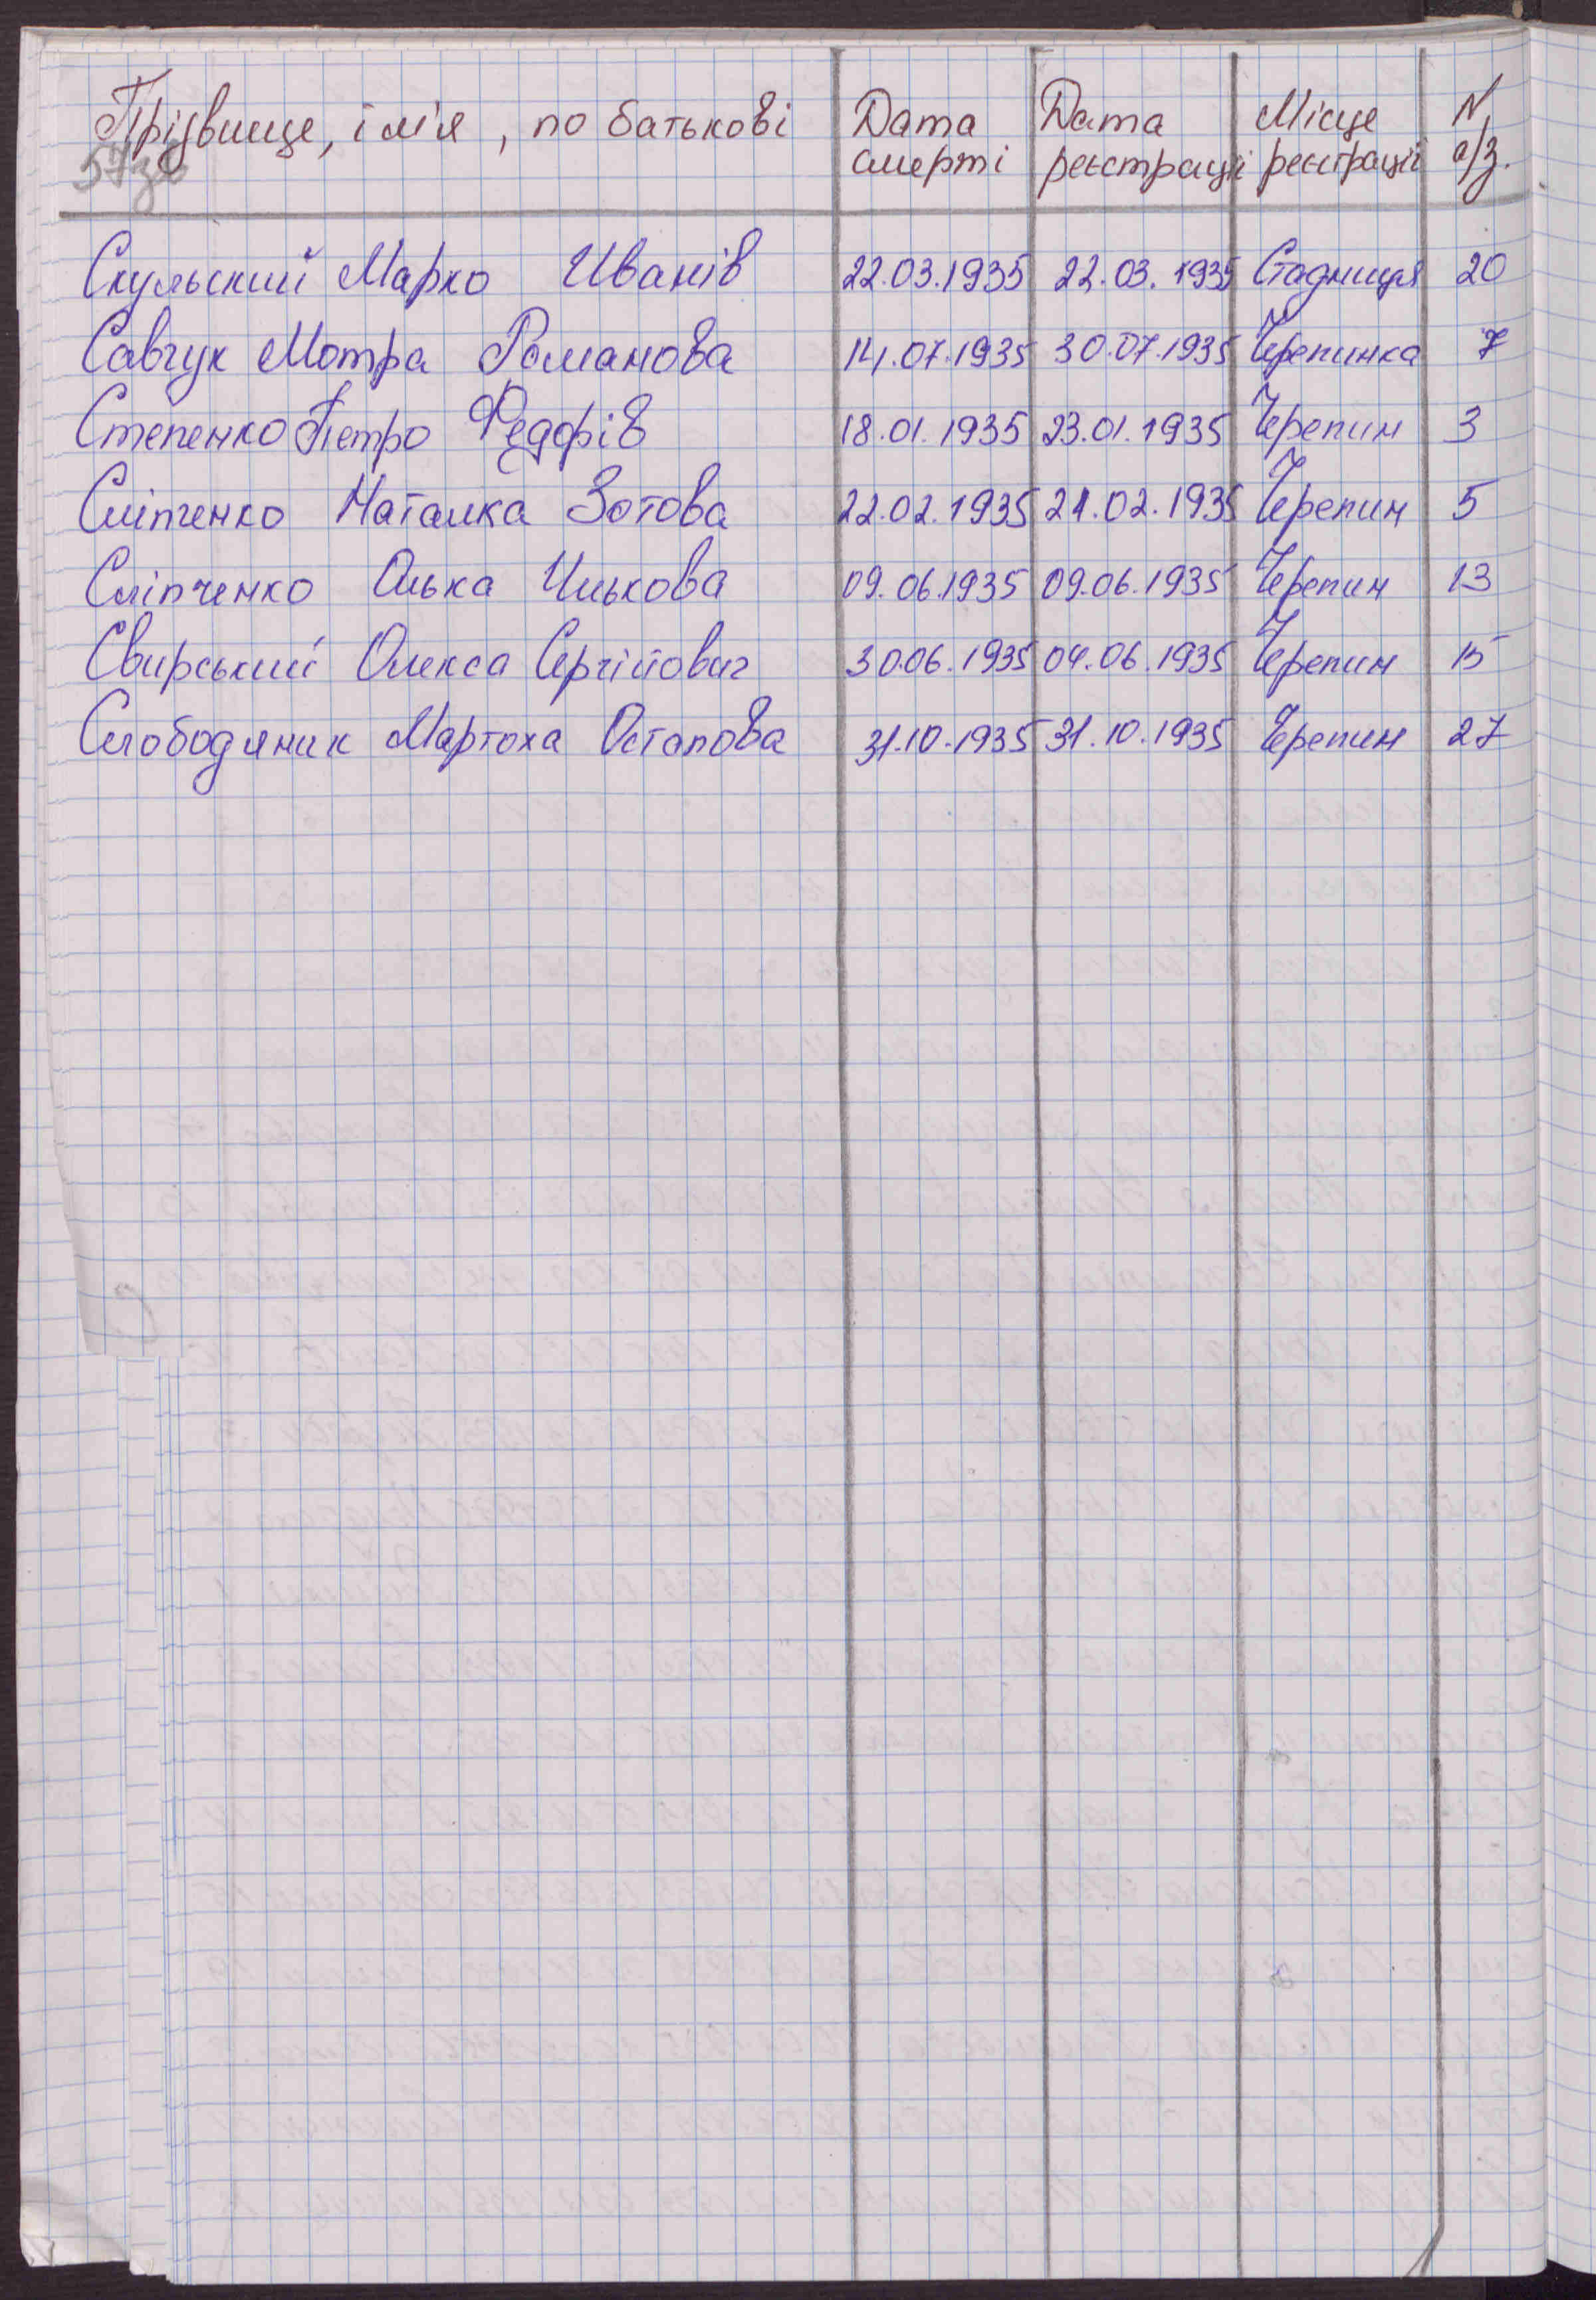 Прізвище, ім'я, по батькові Дата смерті Дата реєстрації Місце реєстрації N а/з.
57зв
Скульский Марко Иванів 22.03.1935 22.03.1935 Стадниця 20
Савчук Мотра Романова 14.07.1935 30.07.1935 Черепинка 7
Степенко Петро Федорів 18.01.1935 23.01.1935 Черепин 3
Сліпченко Наталка Зотова 22.02.1935 24.02.1935 Черепин 5
Сліпченко Олька Илькова 09.06.1935 09.06.1935 Черепин 13
Свирський Олекса Сергійович 30.06.1935 04.06.1935 Черепин 15
Слободяник Мартоха Остапова 31.10.1935 31.10.1935 Черепин 27